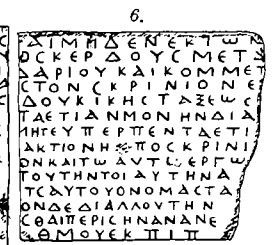 6.
ΑΙΜΗΔΕΝΕΚΤΩΝ
ΟϹΚΕΡΔΟΥϹΜΕΤΑ
ΔΑΡΙΟΥΚΑΙΚΟΜΜΕΤ
ϹΤΟΝϹΚΡΙΝΙΟΝΕ
ΔΟΥΚΙΚΗϹΤΑΞΕΩϹ
ΤΑΕΤΙΑΝΜΟΝΗΝΔΙΑ
ΠΕΡΠΕΝΤΑΕΤΙ
ΑΚΤΙΟΝΗ ΠΟϹΚΡΙΝΙ
ΟΝΚΑΙΤΩΑΥΤΩΕΡΓΩ
ΤΟΥΤΗΝΤΟΙΑΥΤΗΝΑ
ΤϹΑΥΤΟΥΟΝΟΜΑϹΤΑ
ΟΝΔΕΔΙΑΛΛΟΥΤΗΝ
ϹΘΑΙΠΕΡΙϹΗΝΑΝΑΝΕ
ΘΜΟΥΕΚΠΙΠ